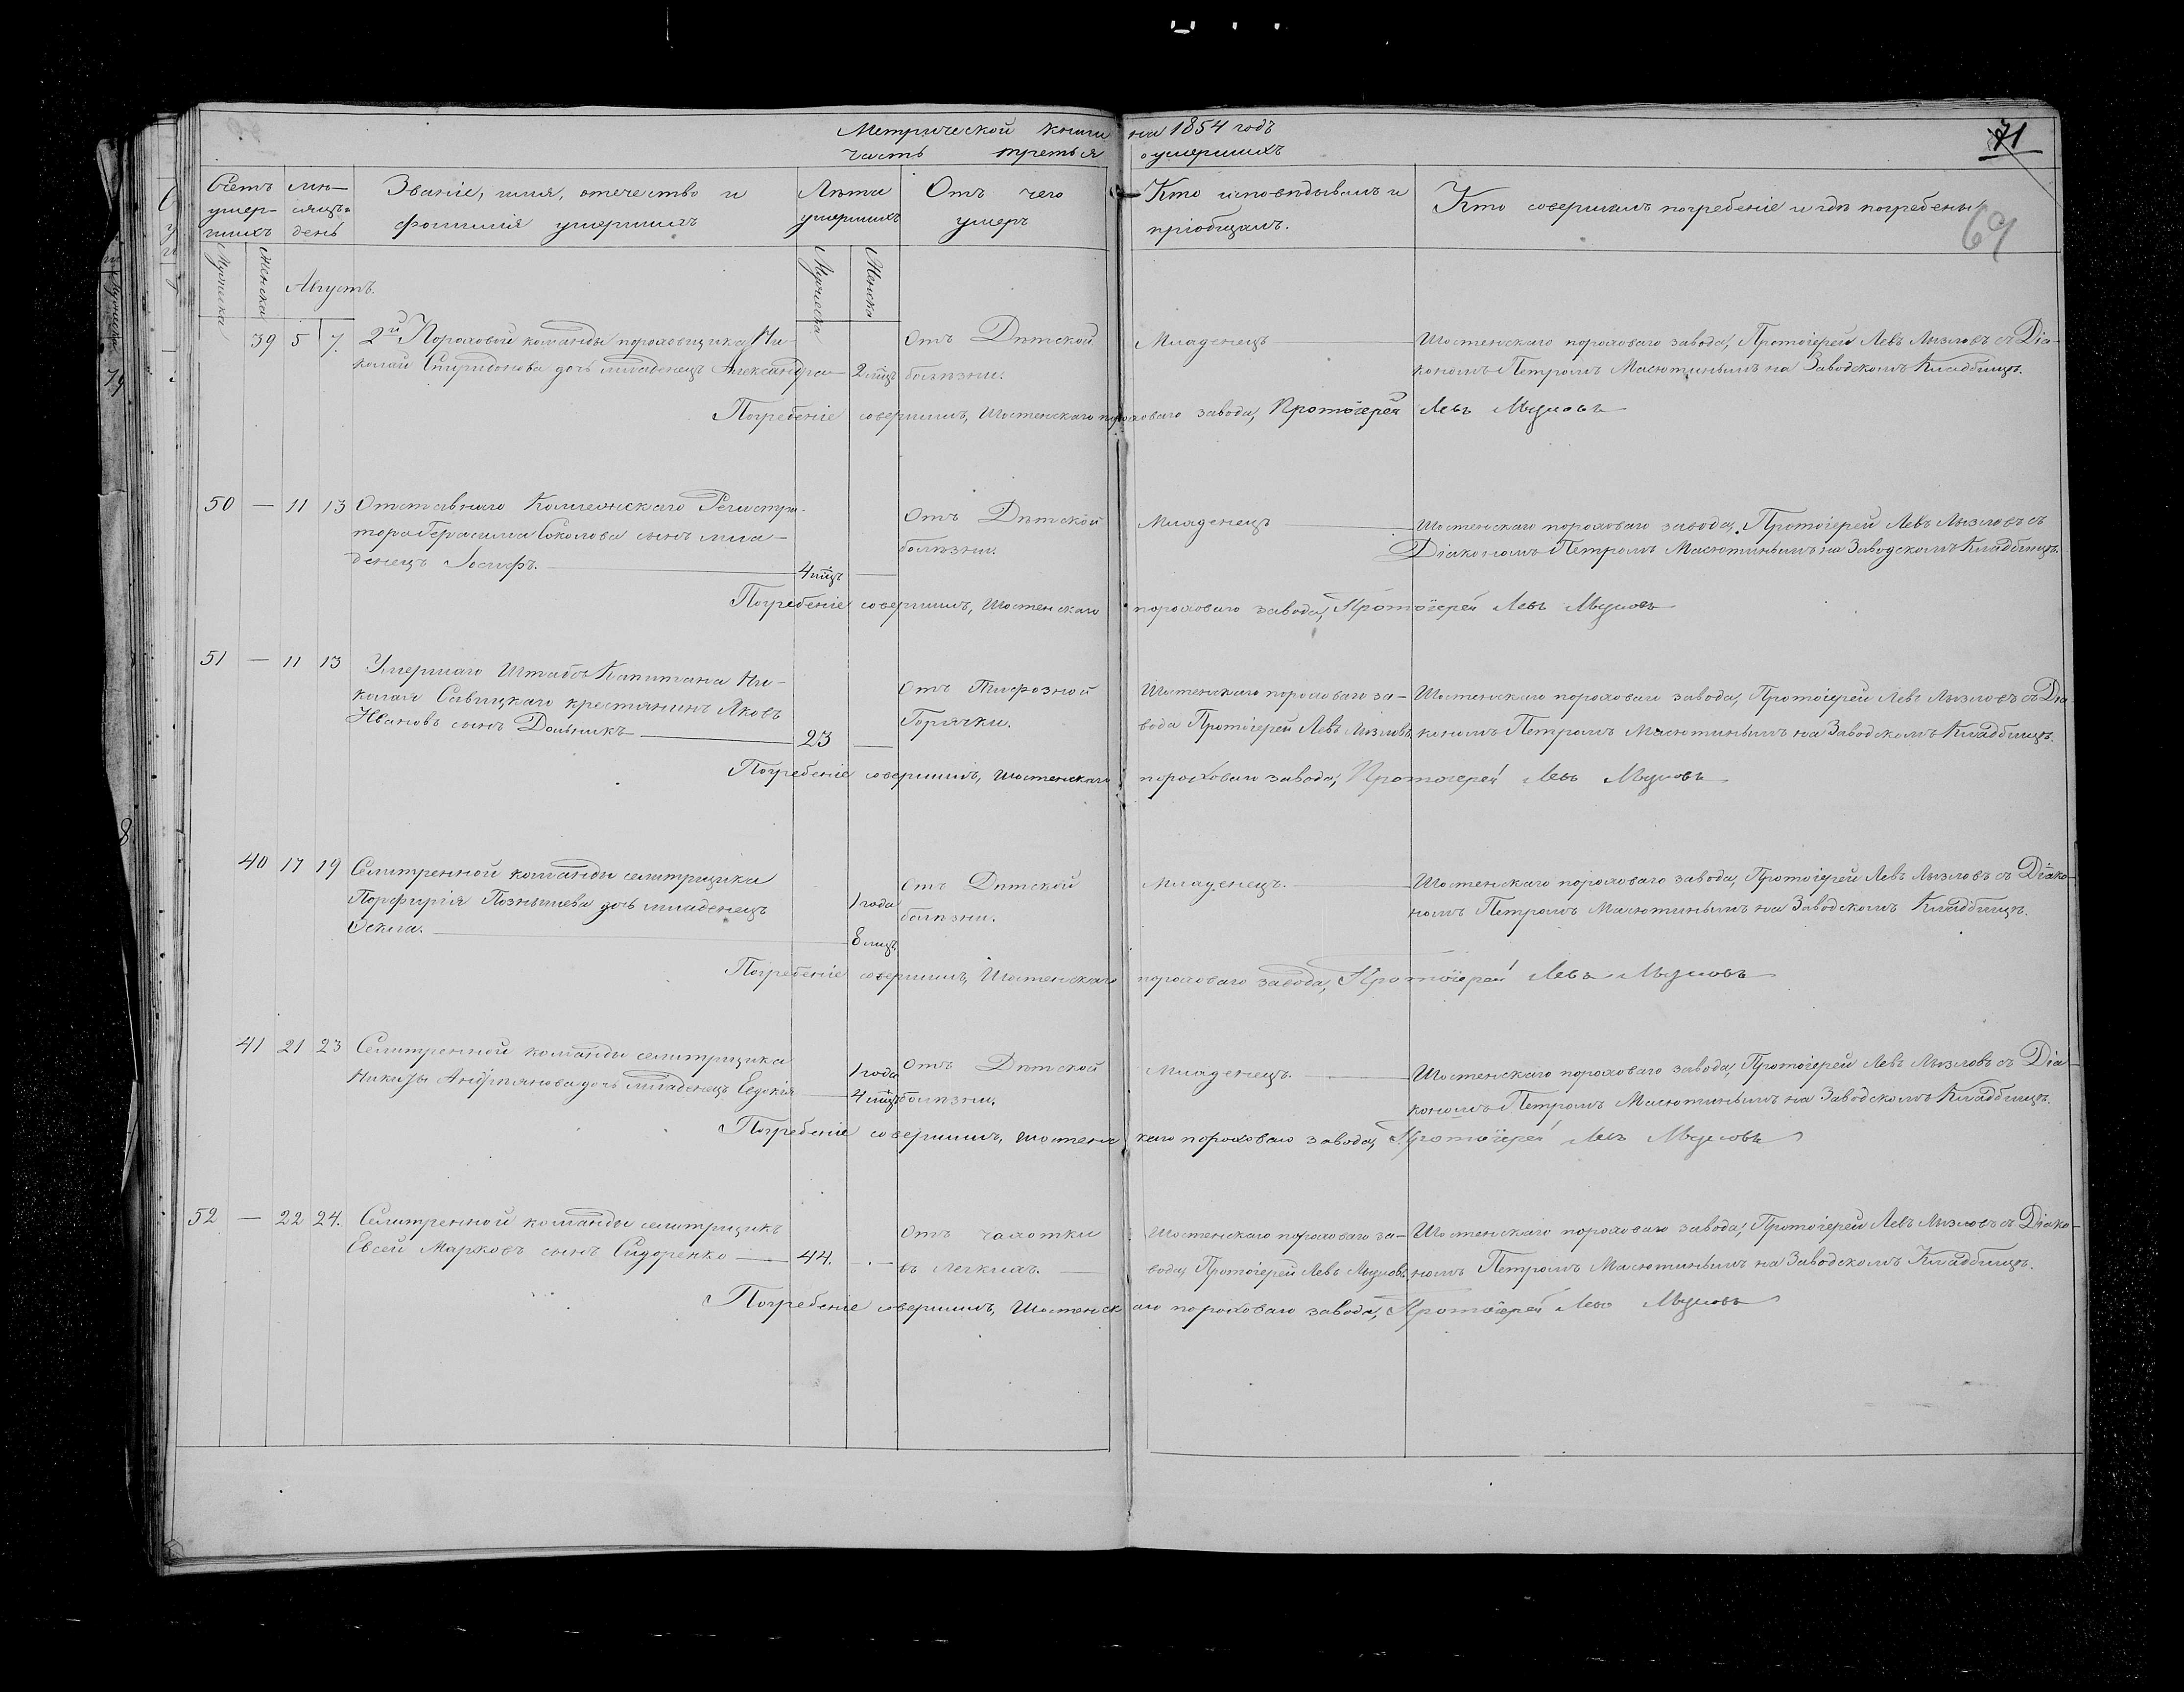 Метрической книги на 1854 годъ
часть третья о умершихъ
71
69
Счетъ умер-шихъ
мѣ-сяцъ и день
Званіе, имя, отечество и
фамилія умершихъ
Лѣта
умершихъ
Отъ чего
умеръ
Кто исповѣдывалъ и
пріобщалъ.
Кто совершалъ погребеніе и гдѣ погребены
Мужеска
Женска
Августъ.
Мужеска
Женска
39 5 7. 2й Пороховой команды пороховщика Ни-
колая Спиридонова дочь младенецъ Александра — 2 мцъ
Отъ Дѣтской
болѣзни.
Младенецъ
Шостенскаго пороховаго завода, Протоіерей Левъ Лызловъ съ Діа-
кономъ Петромъ Масютинымъ на Заводскомъ Кладбищѣ.
Погребеніе совершилъ, Шостенскаго пороховаго завода, Протоіерей Левъ Лызловъ
50 — 11 13 Отставнаго Коллежскаго Регистра-
тора Герасима Соколова сынъ мла-
денецъ Іосифъ. — 4 мцъ —
Отъ Дѣтской
болѣзни.
Младенецъ
Шостенскаго пороховаго завода, Протоіерей Левъ Лызловъ съ
Діакономъ Петромъ Масютинымъ на Заводскомъ Кладбищѣ.
Погребеніе совершилъ, Шостенскаго пороховаго завода, Протоіерей Левъ Лызловъ
51 — 11 13 Умершаго Штабсъ Капитана Ни-
колая Савицкаго крестьянинъ Яковъ
Ивановъ сынъ Дольникъ — 23 —
Отъ Тифозной
Горячки.
Шостенскаго пороховаго за-
вода Протоіерей Левъ Лызловъ
Шостенскаго пороховаго завода, Протоіерей Левъ Лызловъ съ Діа-
кономъ Петромъ Масютинымъ на Заводскомъ Кладбищѣ.
Погребеніе совершилъ, Шостенскаго пороховаго завода, Протоіерей Левъ Лызловъ
40 17 19 Селитренной команды селитрщика
Порфирія Познышева дочь младенецъ
Ѳекла. — 1 года
8 мцъ
Отъ Дѣтской
болѣзни.
Младенецъ.
Шостенскаго пороховаго завода, Протоіерей Левъ Лызловъ съ Діако-
номъ Петромъ Масютинымъ на Заводскомъ Кладбищѣ.
Погребеніе совершилъ, Шостенскаго пороховаго завода, Протоіерей Левъ Лызловъ
41 21 23 Селитренной команды селитрщика
Никиты Андріянова дочь младенецъ Евдокія — 1 года
4 мцъ
Отъ Дѣтской
болѣзни.
Младенецъ.
Шостенскаго пороховаго завода, Протоіерей Левъ Лызловъ съ Діа-
кономъ Петромъ Масютинымъ на Заводскомъ Кладбищѣ.
Погребеніе совершилъ, Шостенскаго пороховаго завода, Протоіерей Левъ Лызловъ
52 — 22 24. Селитренной команды селитрщикъ
Евсей Марковъ сынъ Сидоренко — 44. —
Отъ чахотки
въ легкихъ.
Шостенскаго пороховаго за-
вода, Протоіерей Левъ Лызловъ
Шостенскаго пороховаго завода, Протоіерей Левъ Лызловъ съ Діако-
номъ Петромъ Масютинымъ на Заводскомъ Кладбищѣ.
Погребеніе совершилъ, Шостенскаго пороховаго завода, Протоіерей Левъ Лызловъ